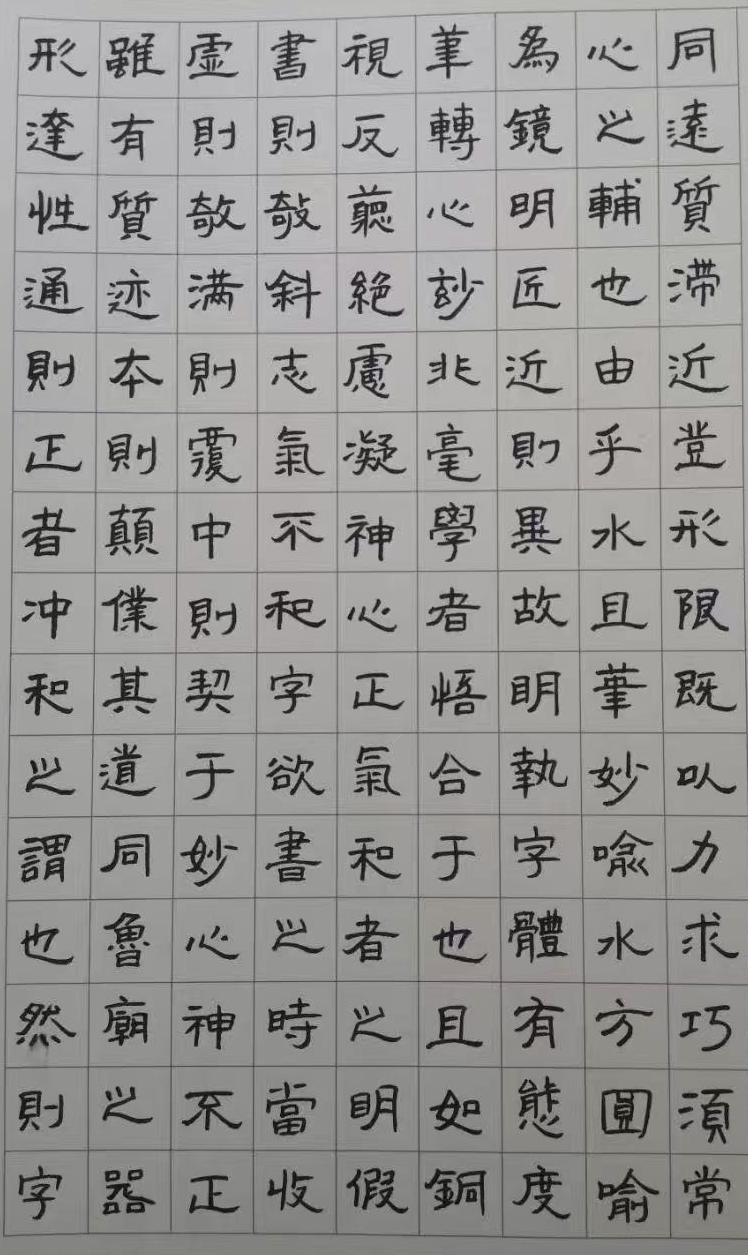 同遠質滯近豈形限既以力求巧須常
心之輔也由乎水且筆妙喻水方圓喻
為鏡明匠近則異故明執字體有態度
筆轉心玅非毫學者悟合于也且如銅
視反聽絕慮凝神心正氣和者之明假
書則敧斜志氣不和字欲書之時當收
虛則敧滿則覆中則契于妙心神不正
雖有質迹本則顛僕其道同魯廟之器
形達性通則正者冲和之謂也然則字